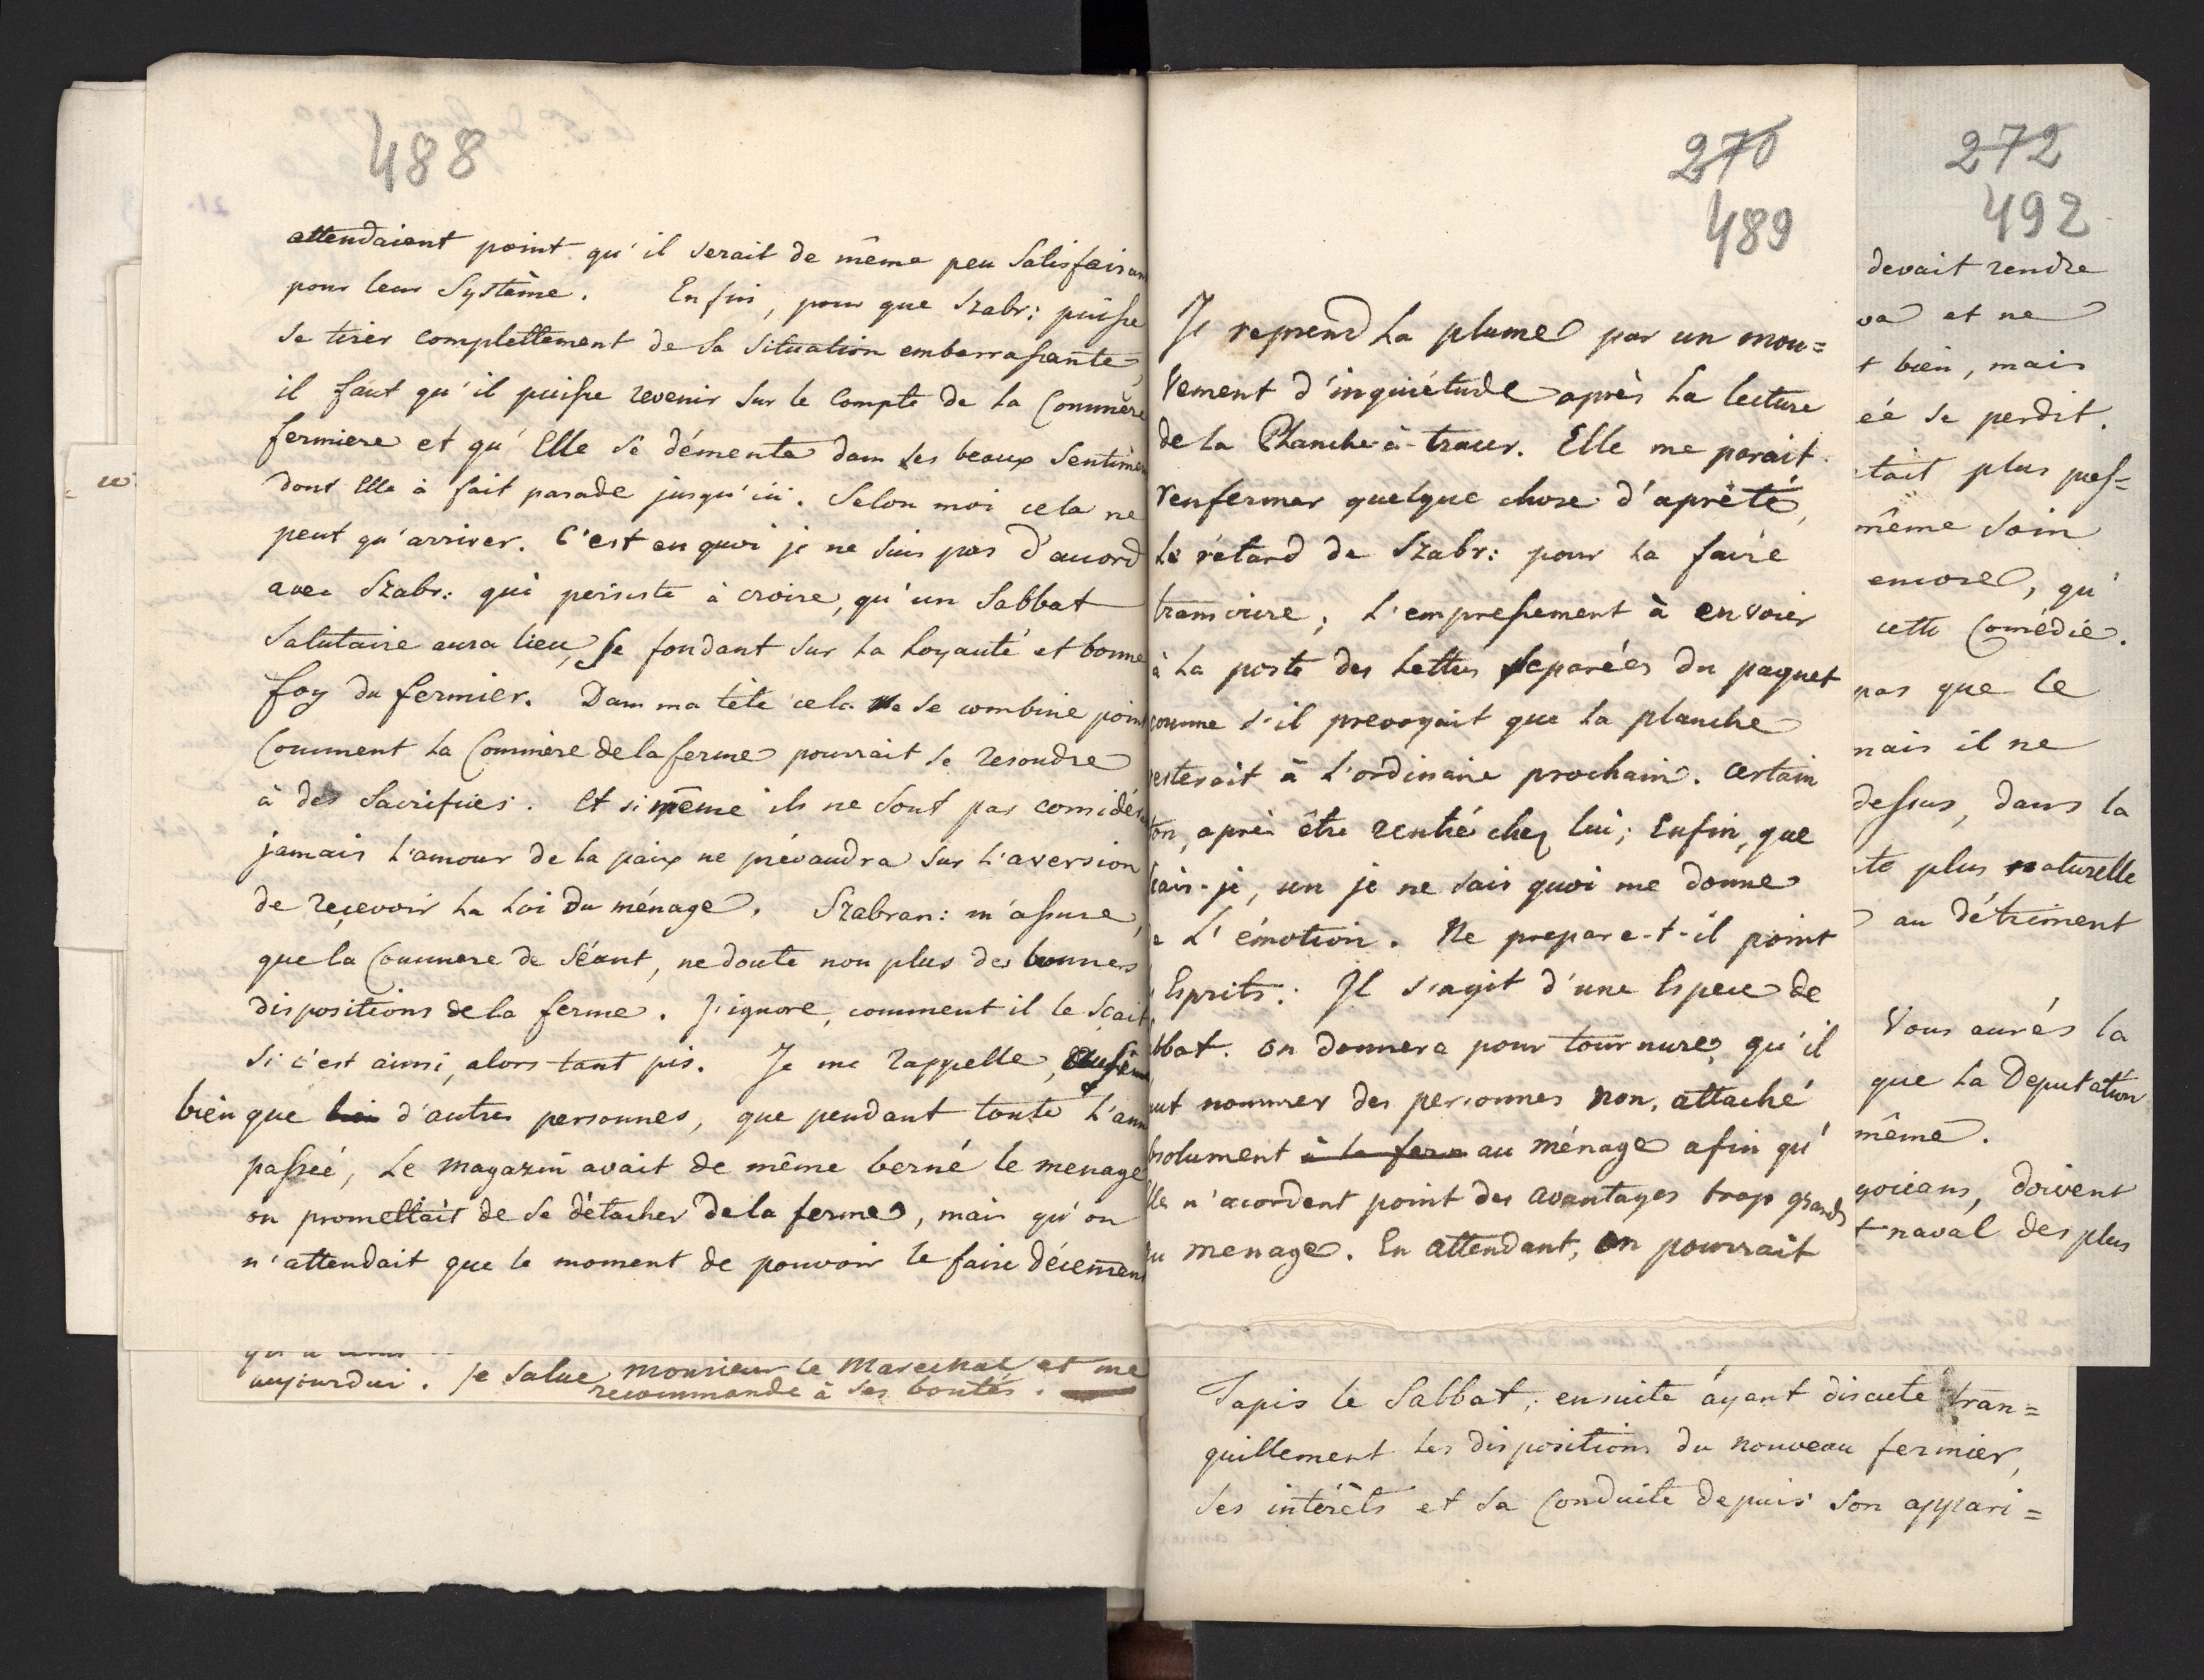 488
attendaient point qu'il serait de même peu Satisfaisan
pour leur Systême. Enfin, pour que Szabr: puisse
se tirer complettement de sa situation embarrassante,
il faut qu'il puisse revenir sur le Compte de la Commère
fermiere et qu'Elle se démente dans ses beaux Sentimen
dont Elle à fait parade jusqu'ici. Selon moi cela ne
peut qu'arriver. C'est en quoi je ne suis pas d'acord
avec Szabr: qui persiste à croire, qu'un Sabbat
Salutaire aura lieu, se fondant sur la Loyauté et bonne
foy du fermier. Dans ma tête cela ne se combine point
Comment la Commère de la ferme pourrait se resoudre
à des Sacrifices. Et si même ils ne sont pas considér
jamais l'amour de la paix ne prévaudra sur l'aversion
de reçevoir la Loi du ménage. Szabran: m'assure,
que la Commere de Séant, ne doute non plus des bonnes
dispositions de la ferme. J'ignore, comment il le sçait,
si c'est ainsi, alors tant pis. Je me rappelle,
bien que d'autres personnes, que pendant toute l'ann
passée, Le magazin avait de même berné le menage
on promettait de se détacher de la ferme, mais qu'on
n'attendait que le moment de pouvoir le faire décemen
aujourdui. Je salue monsieur le Marechal et me
recommande à ses bontés.
270
489
Je reprend la plume par un mou=
vement d'inquiétude après la lecture
de la Planche-à-tracer. Elle me parait
renfermer quelque chose d'apreté,
Le retard de Szabr: pour la faire
transcrire; L'empressement à envoier
à la poste des Lettres separées du paquet
comme s'il prevoyait que la planche
resterait à l'ordinaire prochain. Certain
ton, après être rentré chez lui; Enfin, que
sçais-je, un je ne sais quoi me donne
e L'émotion. Ne prepare-t-il point
Esprits: Il s'agit d'une Espece de
bbat. on donnera pour tournure, qu'il
aut nommer des personnes non, attaché
bsolument à la ferme au ménage afin qu'
lle n'acordent point des avantages trop grands
au menage. En attendant, on pourrait
272
492
devait rendre
va et ne
t bien, mais
éé se perdit.
tait plus pas=
même soin
encore, qu'
cette Comédie.
pas que le
mais il ne
dessus, dans la
te plus naturelle
au détriment
Vous aurés la
que la Deputation
même.
goicians, doivent
naval des plus
Tapis le Sabbat; ensuite ayant discuté tran=
quillement les dispositions du nouveau fermier,
ses intérêts et sa Conduite depuis son appari=